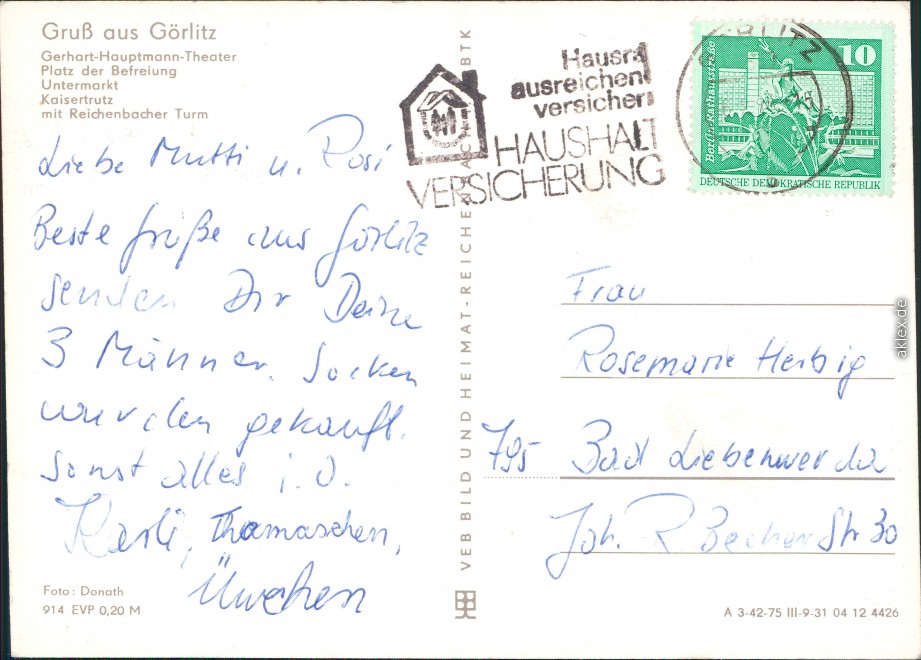 Gruß aus Görlitz
Gerhart-Hauptmann-Theater
Platz der Befreiung
Untermarkt
Kaisertrutz
mit Reichenbacher Turm
Liebe Mutti u. Rosi
Beste Grüße aus Görlitz
senden Dir Deine
3 Männer. Socken
wurden gekauft.
Sonst alles i. O.
Karli, Thomaschen,
Uwchen
Foto: Donath
914 EVP 0,20 M
VEB BILD UND HEIMAT-REICHENBACH
BTK
Hausra
ausreichen
versichern
HAUSHALT
VERSICHERUNG
GÖRLITZ
10
Berlin-Rathausstraße
DEUTSCHE DEMOKRATISCHE REPUBLIK
Frau
Rosemarie Herbig
795 Bad Liebenwerda
Joh. R. Becher Str 30
A 3-42-75 III-9-31 04 12 4426
aklex.de